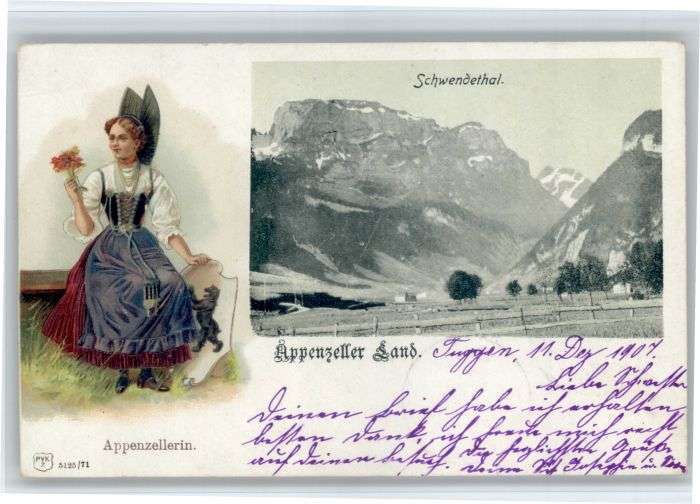 Schwendethal.
Appenzeller Land.
Tuggen, 11. Dez 1907.
Liebe Schwester
Deinen Brief habe ich erhalten
besten Dank ich freue mich recht
auf deinen besuch. Die herzlichsten Grüße
deine Josephin u.
Appenzellerin.
PVK
Z
5125/71